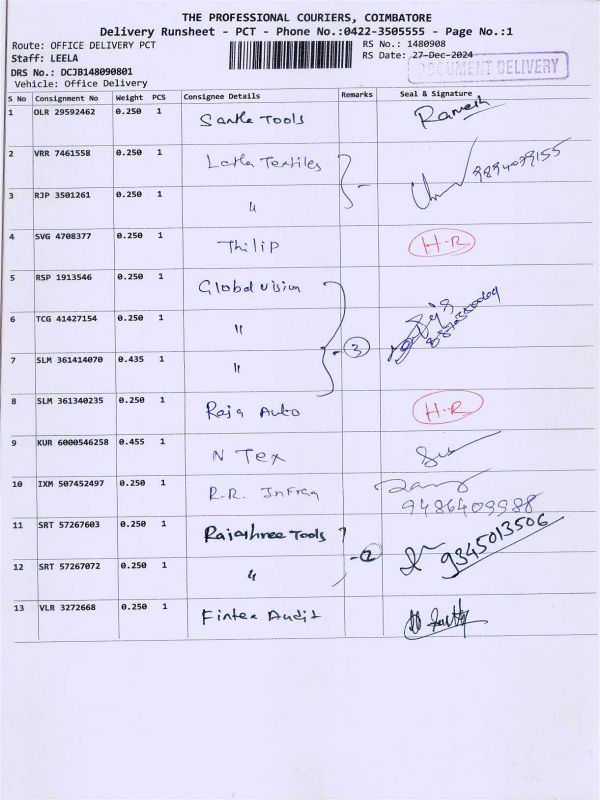 THE PROFESSIONAL COURIERS, COIMBATORE
Delivery Runsheet - PCT - Phone No.:0422-3505555 - Page No.:1
Route: OFFICE DELIVERY PCT RS No.: 1480908
Staff: LEELA RS Date: 27-Dec-2024
DOCUMENT DELIVERY
DRS No.: DCJB148090801
Vehicle: Office Delivery
S No Consignment No Weight PCS Consignee Details Remarks Seal & Signature
1 OLR 29592462 0.250 1 Tools Ramesh
2 VRR 7461558 0.250 1 Latha Textiles
3 RJP 3501261 0.250 1 "
4 SVG 4708377 0.250 1 Thilip H-R
5 RSP 1913546 0.250 1 Global vision
6 TCG 41427154 0.250 1 "
7 SLM 361414070 0.435 1 " 3
8 SLM 361340235 0.250 1 Raja Auto H-R
9 KUR 6000546258 0.455 1 N Tex
10 IXM 507452497 0.250 1 R.R. Infra
11 SRT 57267603 0.250 1 Rajashree Tools 9345013506
12 SRT 57267072 0.250 1 " 2
13 VLR 3272668 0.250 1 Fintex Audit